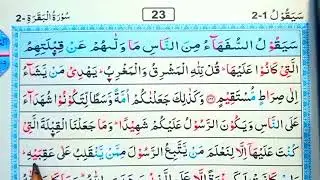 سَيَقُوۡلُ 2-1 23 سُوۡرَةُ الۡبَقَرَة 2-
سَيَقُوۡلُ السُّفَهَآءُ مِنَ النَّاسِ مَا وَلّٰٮهُمۡ عَنۡ قِبۡلَتِهِمُ
الَّتِىۡ كَانُوۡا عَلَيۡهَا ؕ قُلۡ لِّلّٰهِ الۡمَشۡرِقُ وَالۡمَغۡرِبُ ؕ يَهۡدِىۡ مَنۡ يَّشَآءُ
اِلٰى صِرَاطٍ مُّسۡتَقِيۡمٍ وَكَذٰلِكَ جَعَلۡنٰكُمۡ اُمَّةً وَّسَطًا لِّتَکُوۡنُوۡا شُهَدَآءَ
عَلَى النَّاسِ وَيَكُوۡنَ الرَّسُوۡلُ عَلَيۡكُمۡ شَهِيۡدًا ؕ وَمَا جَعَلۡنَا الۡقِبۡلَةَ الَّتِىۡ
كُنۡتَ عَلَيۡهَآ اِلَّا لِنَعۡلَمَ مَنۡ يَّتَّبِعُ الرَّسُوۡلَ مِمَّنۡ يَّنۡقَلِبُ عَلٰى عَقِبَيۡهِ ؕ